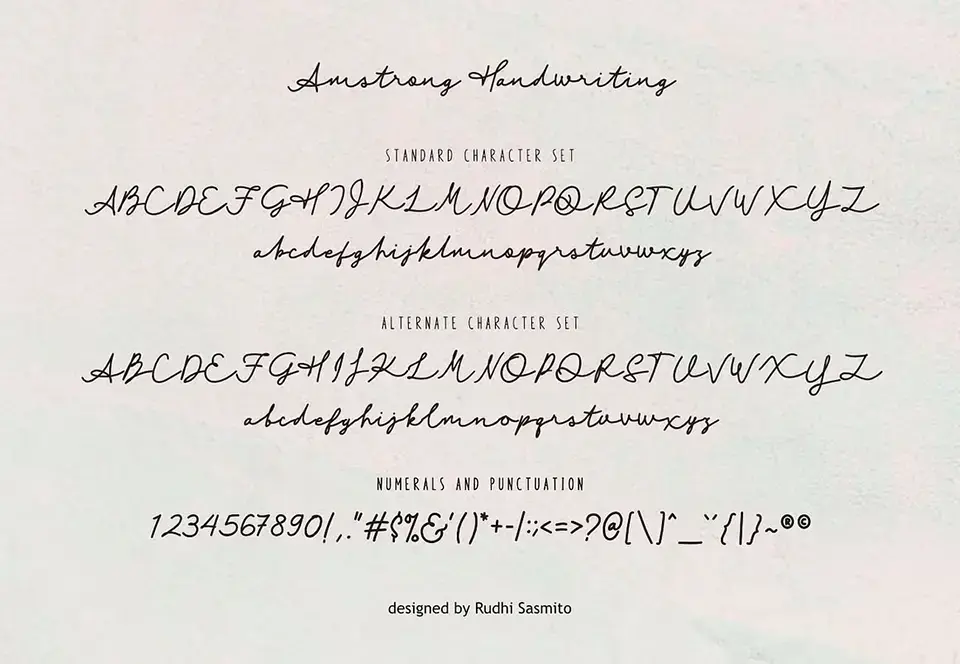 Amstrong Handwriting
STANDARD CHARACTER SET
ABCDEFGHIJKLMNOPQRSTUVWXYZ
abcdefghijklmnopqrstuvwxyz
ALTERNATE CHARACTER SET
ABCDEFGHIJKLMNOPQRSTUVWXYZ
abcdefghijklmnopqrstuvwxyz
NUMERALS AND PUNCTUATION
1234567890!,."#$%&'()*+-/:;<=>?@[\]^_`´{|}~®©
designed by Rudhi Sasmito